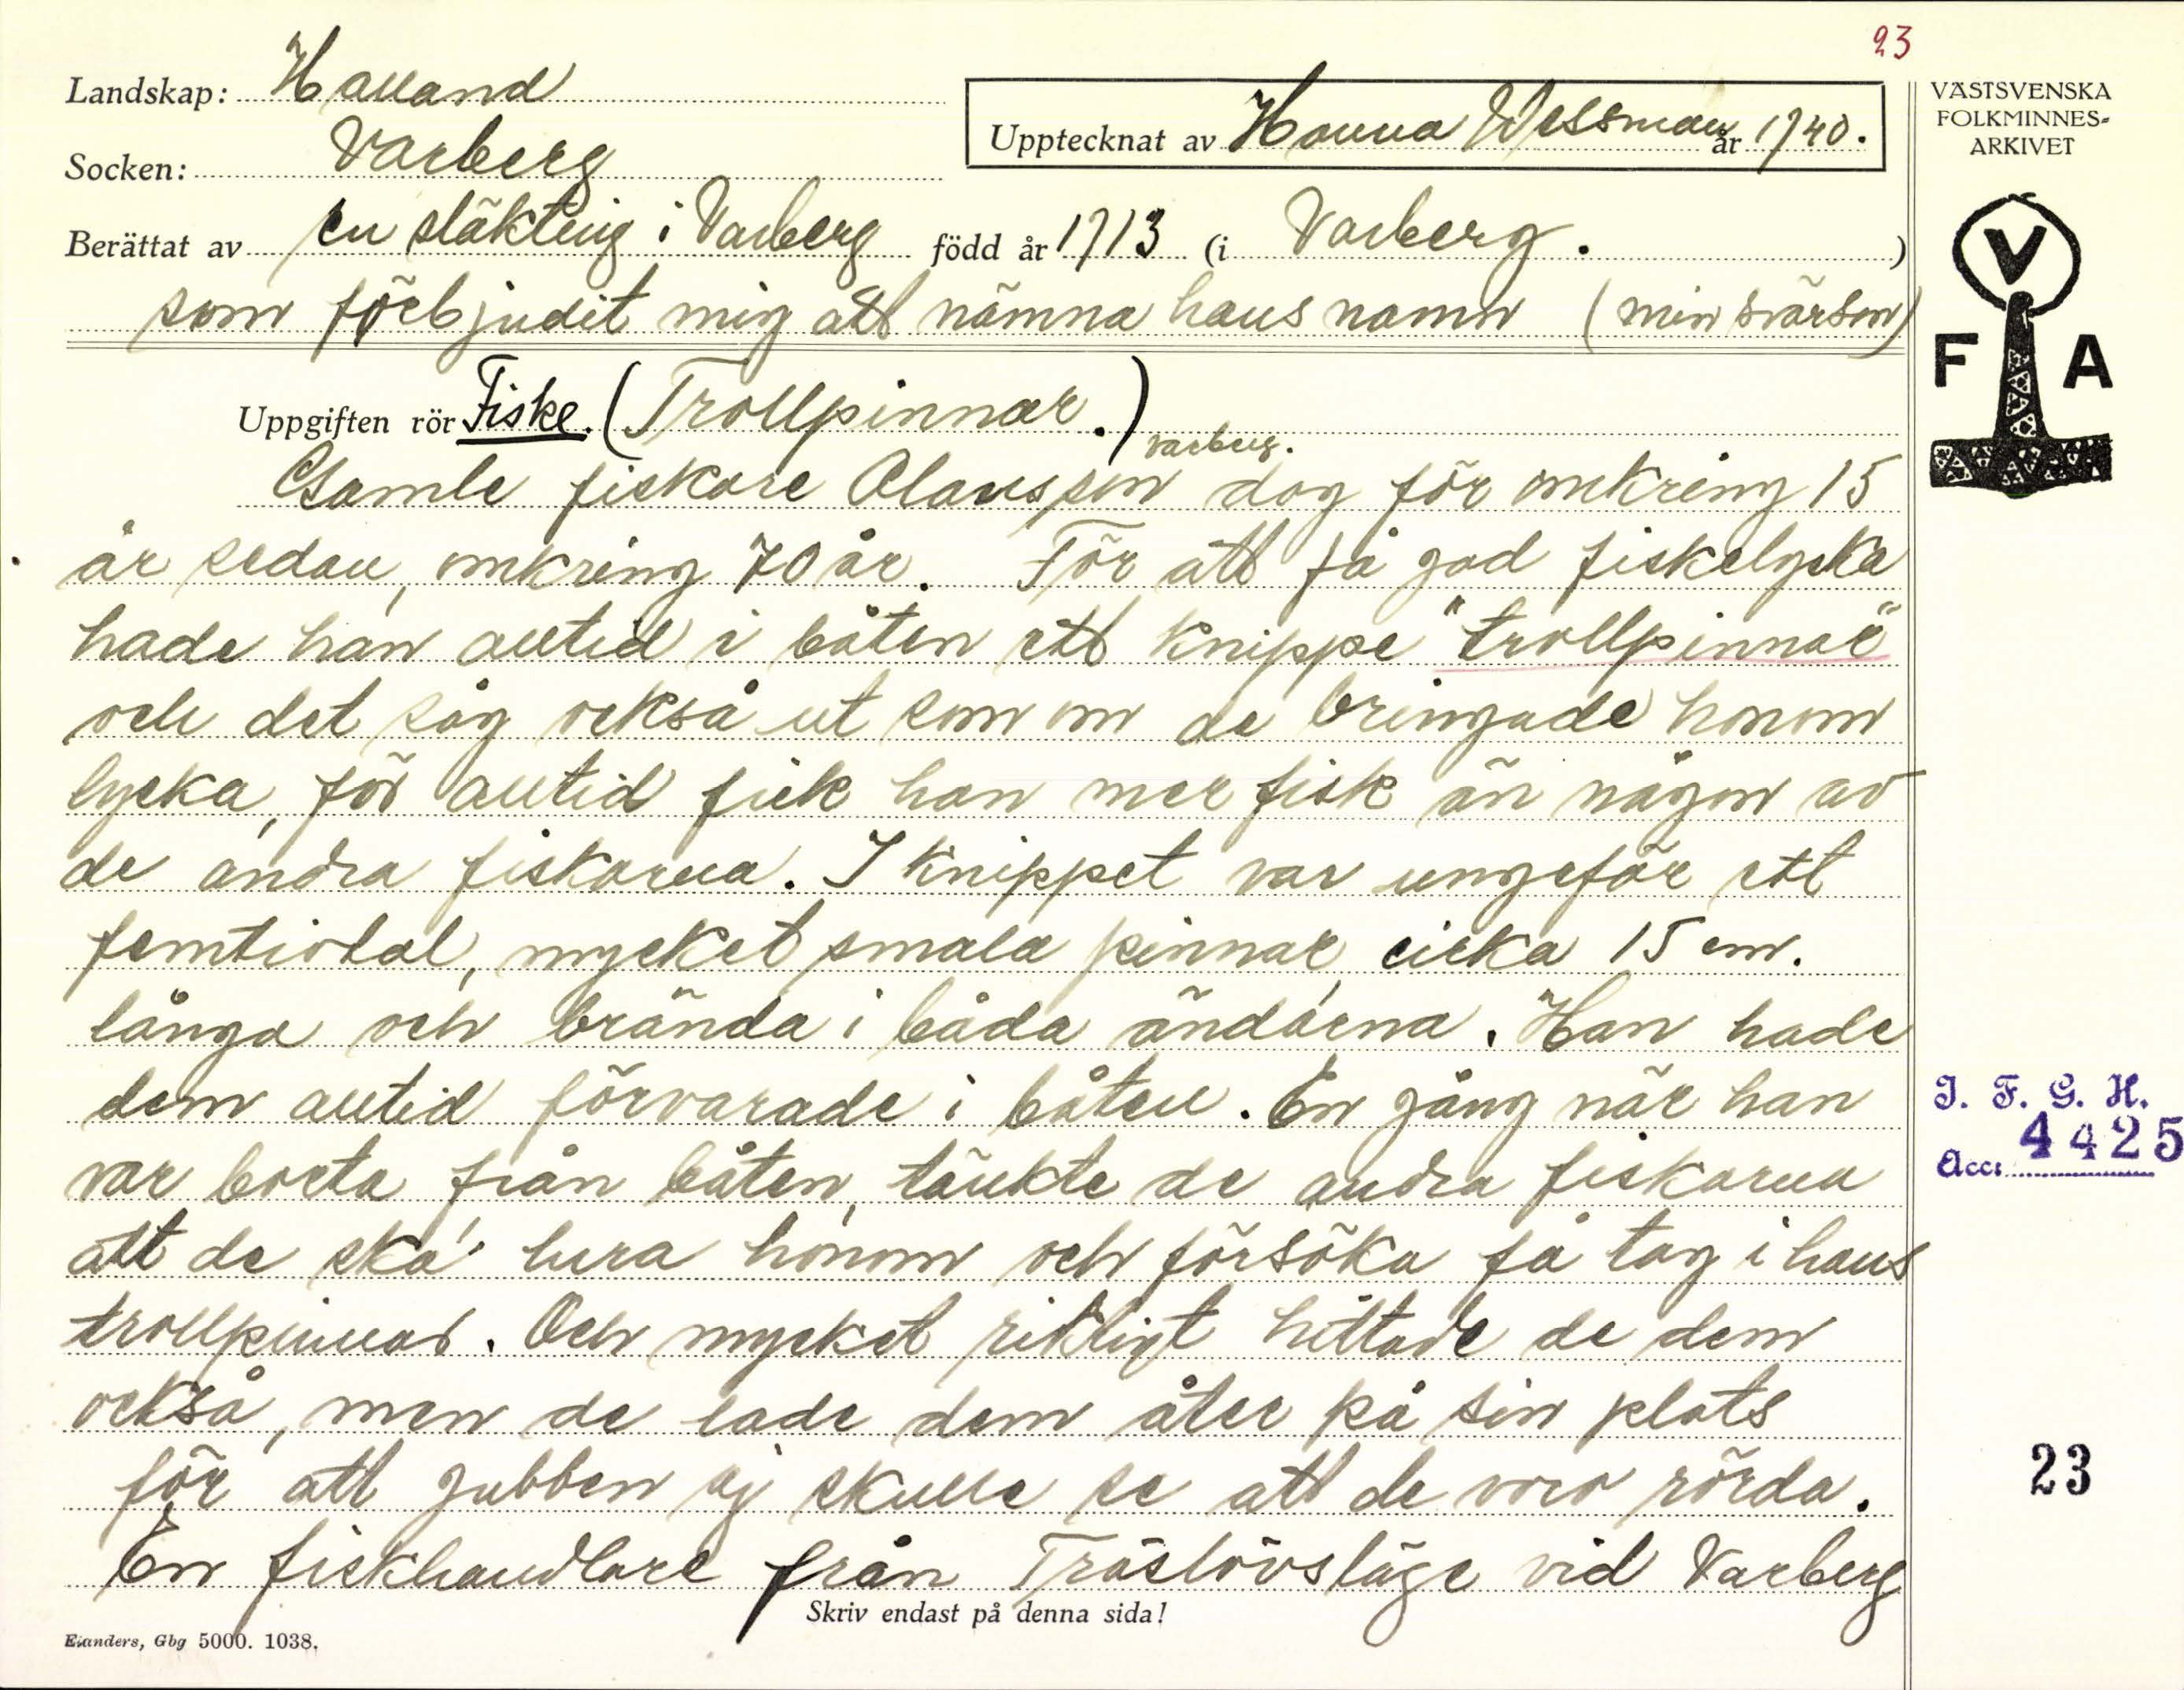 23
Landskap: Halland
Upptecknat av Hanna Wessman år 1940.
Socken: Varberg
Berättat av en släkting i Varberg född år 1913 (i Varberg.)
som förbjudit mig att nämna hans namn (min svärson)
Uppgiften rör Fiske. (Trollpinnar.)
varberg.
Gamle fiskare Clausson dog för omkring 15
år sedan, omkring 70 år. För att få god fiskelycka
hade han alltid i båten ett knippe "trollpinnar"
och det såg också ut som om de bringade honom
lycka, för alltid fick han mer fisk än någon av
de andra fiskarna. I knippet var ungefär ett
femtiotal, mycket smala pinnar, cirka 15 cm.
långa och brända i båda ändarna. Han hade
dem alltid förvarade i båten. En gång när han
var borta från båten, tänkte de andra fiskarna
att de ska' lura honom och försöka få tag i hans
trollpinnar. Och mycket riktigt hittade de dem
också, men de lade dem åter på sin plats
för att gubben ej skulle se att de voro rörda.
En fiskhandlare från Träslövsläge vid Varberg
Skriv endast på denna sida!
Elanders, Gbg 5000. 1038.
VÄSTSVENSKA
FOLKMINNES-
ARKIVET
V
F A
I. F. G. H.
Acc. 4425
23